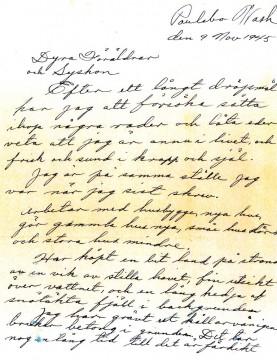 Poulsbo Wash
den 9 Nov 1945
Dyra Föräldrar
och Syskon
Efter ett långt dröjsmål
har jag att försöka sätta
ihop några rader och låta eder
veta att jag är ännu i livet, och
frisk och sund i kropp och själ.
Jag är på samma ställe jag
var när jag sist skrev.
Arbetar med husbygge, nya hus,
gör gammla hus nya, små hus större
och stora hus mindre.
Har köpt en bit land på strand
av en vik av stilla havet, fin utsikt
över vattnet, och en hög kedja af
snötäkta fjäll i backgrunden
Jag har grävt ut källarvåningen
betong i grunden. Det tar
nog en lång tid till det är färdigt